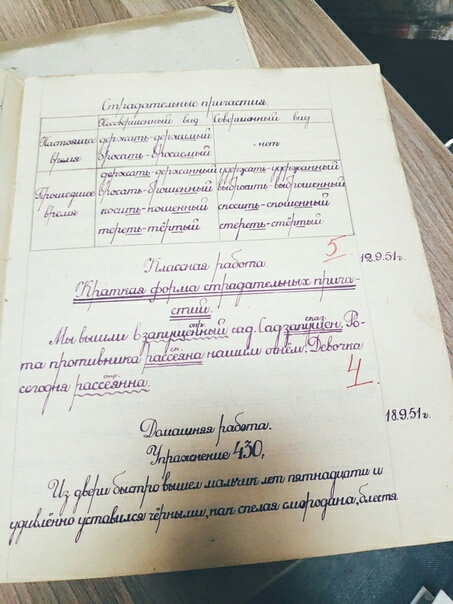 Страдательные причастия.
Несовершенный вид Совершенный вид
Настоящее время держать-держимый нет
бросать-бросаемый
Прошедшее время держать-держанный удержать-удержанный
бросать-брошенный выбросить-выброшенный
носить-ношенный сносить-сношенный
тереть-тёртый стереть-стёртый
5
Классная работа. 12.9.51г.
Краткая форма страдательных прича-
стий.
опр. сказ.
Мы вышли в запущенный сад. Сад запущен. Ро-
та противника рассеяна нашим огнём. Девочка
сегодня рассеянна.
4
18.9.51г.
Домашняя работа.
Упражнение 430,
Из двери быстро вышел мальчик лет пятнадцати и
удивлённо уставился чёрными, как спелая смородина, блестя